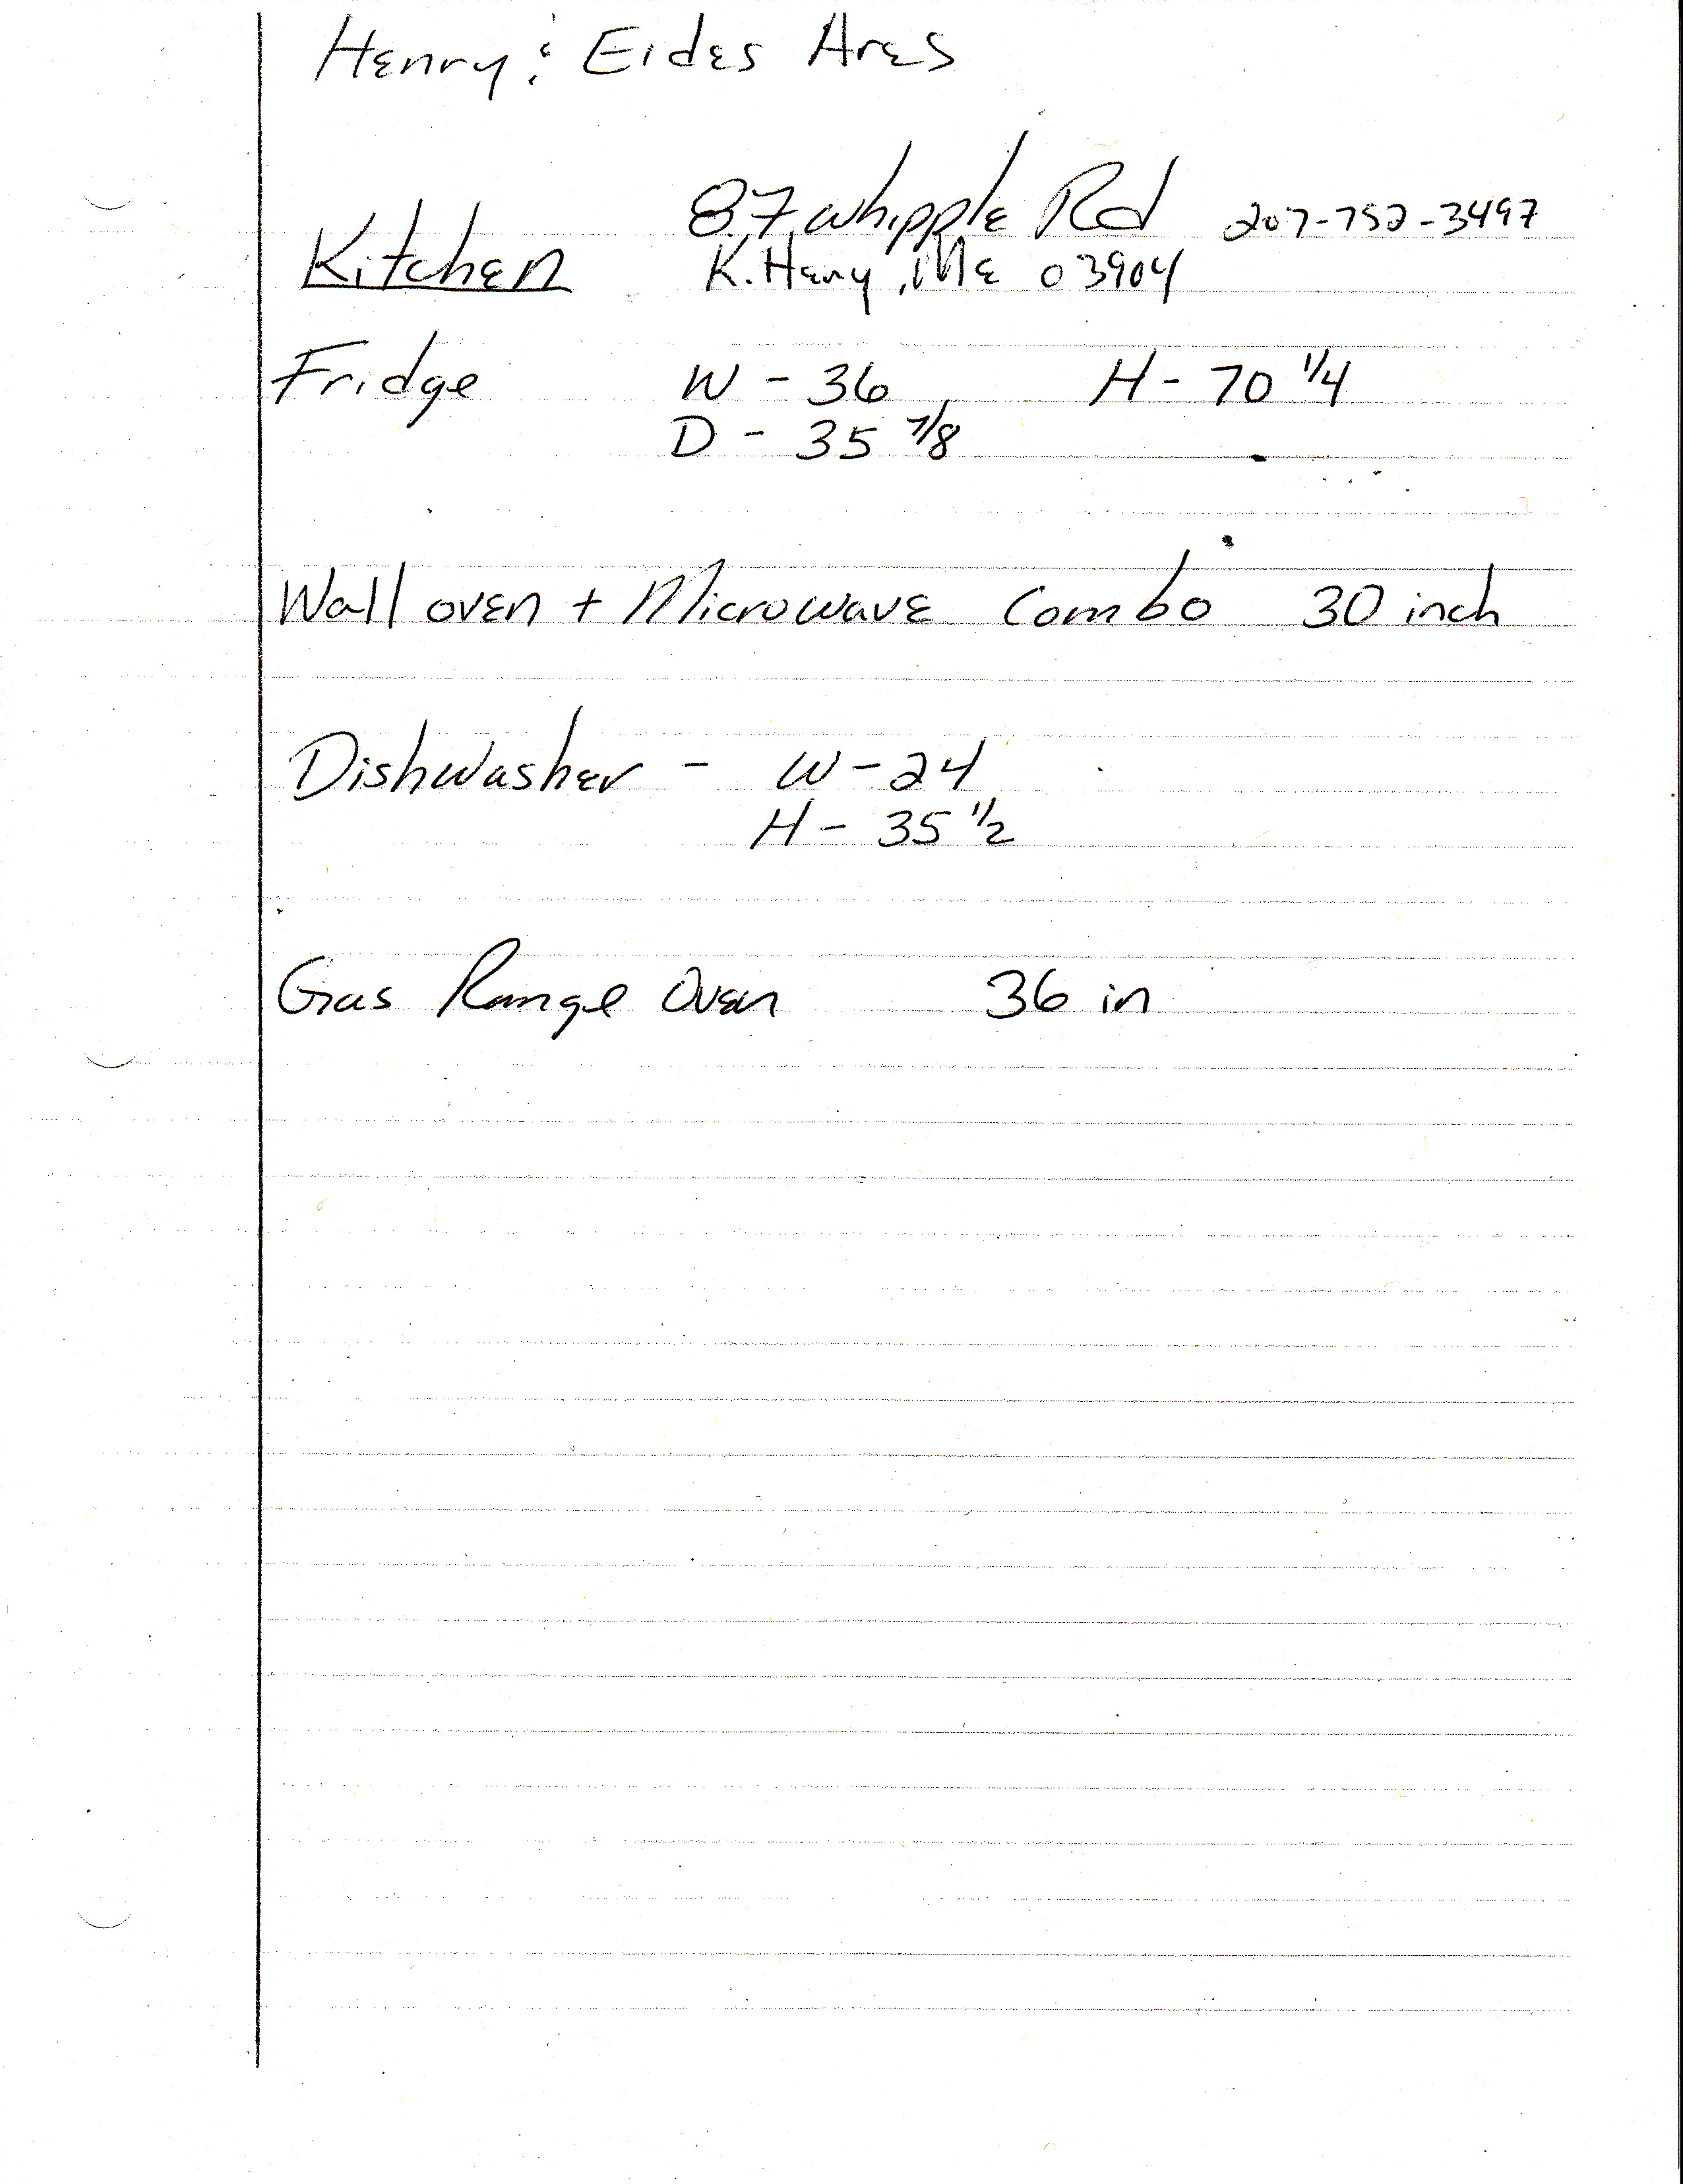 Henry & Eides Ares
87 Whipple Rd 207-752-3497
Kitchen Kittery, ME 03904
Fridge W - 36 H - 70 1/4
D - 35 7/8
Wall oven + Microwave Combo 30 inch
Dishwasher - W - 24
H - 35 1/2
Gas Range Oven 36 in